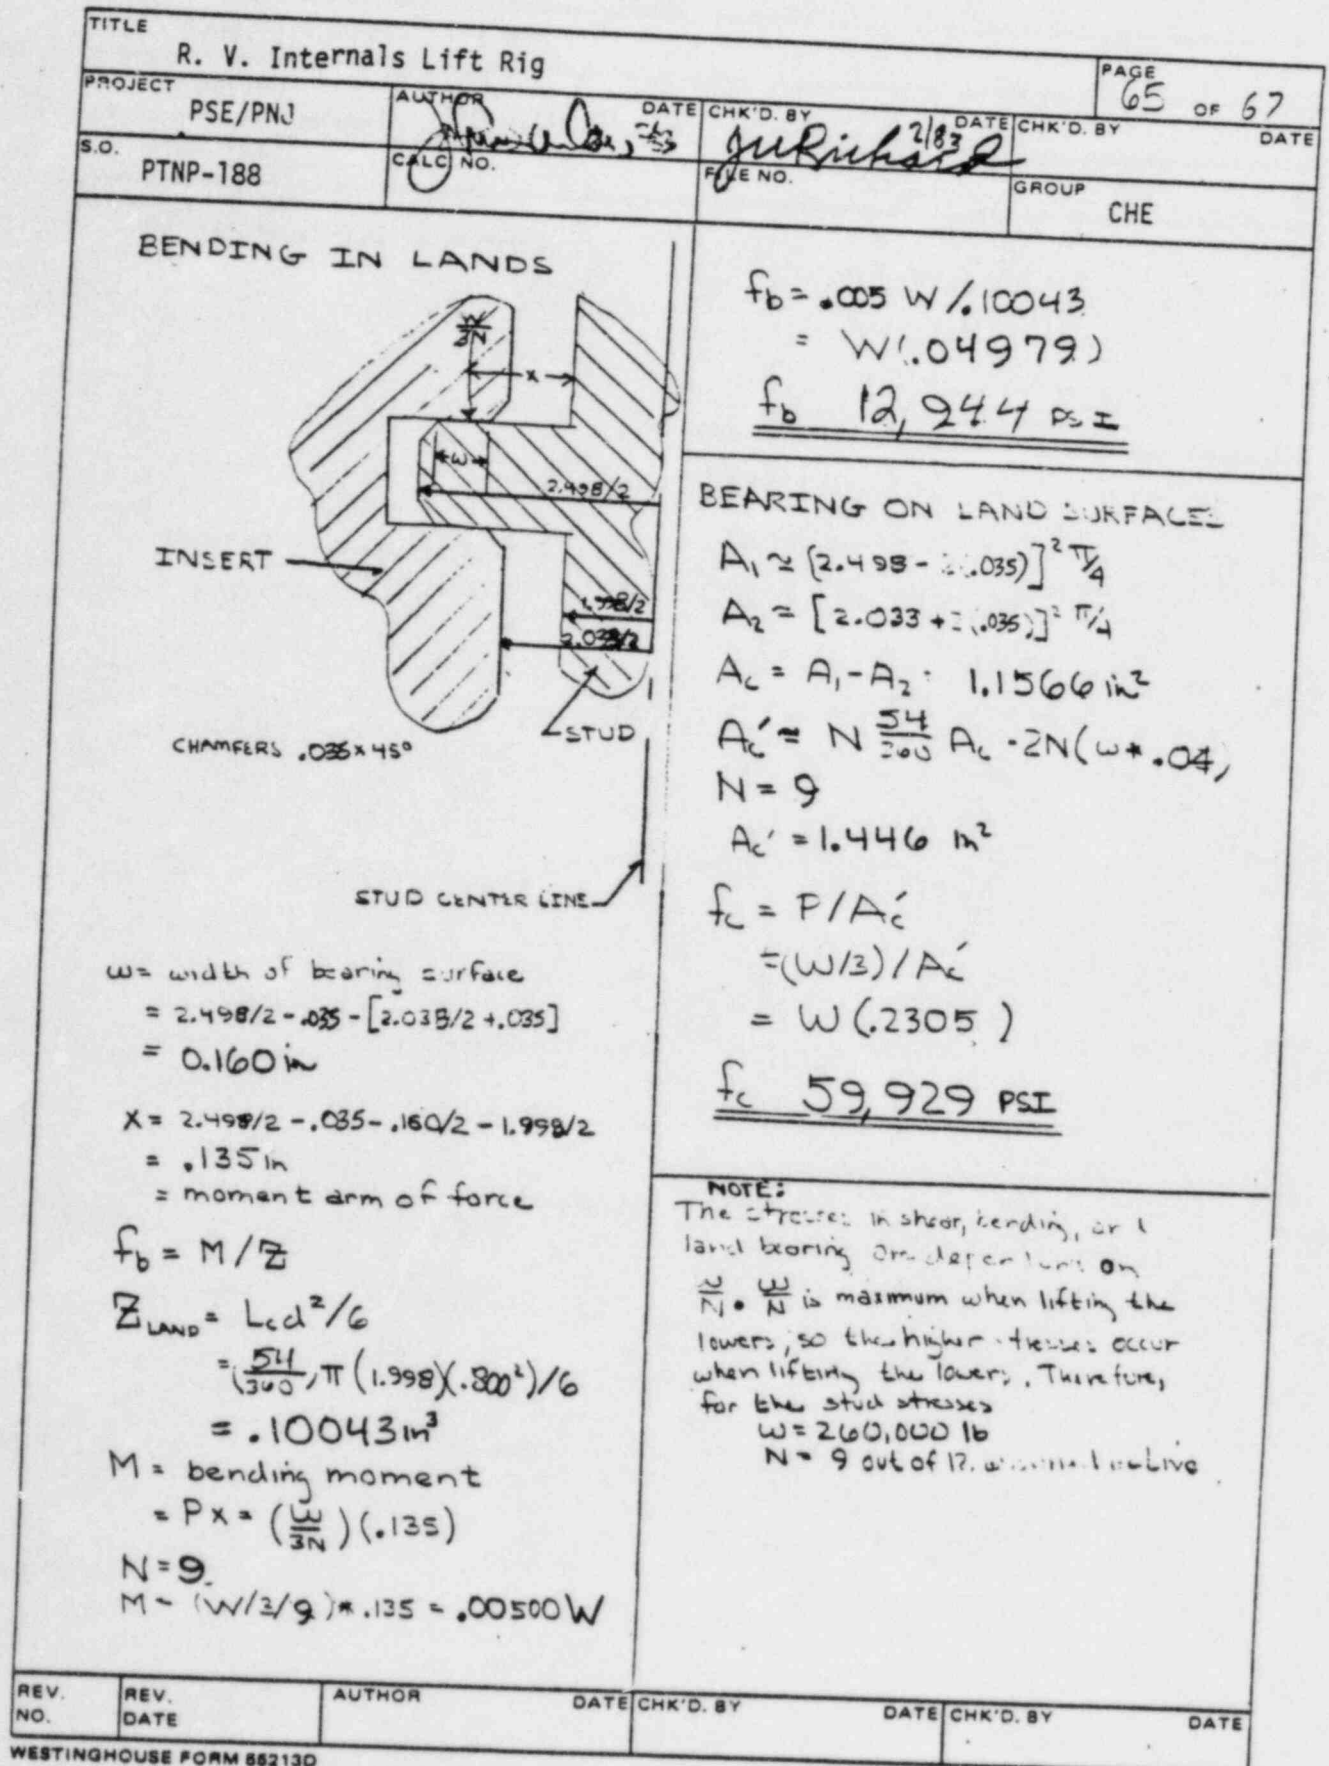 TITLE
R. V. Internals Lift Rig
PAGE
65 OF 67
PROJECT
PSE/PNJ
AUTHOR
DATE
CHK'D. BY
DATE
JWRichard 2/83
CHK'D. BY
DATE
S.O.
PTNP-188
CALC. NO.
FILE NO.
GROUP
CHE
BENDING IN LANDS
W/3N
x
w
2.498/2
INSERT
1.998/2
2.038/2
STUD
CHAMFERS .035 x 45°
STUD CENTER LINE
w = width of bearing surface
= 2.498/2 - .035 - [2.038/2 + .035]
= 0.160 in
X = 2.498/2 - .035 - .160/2 - 1.998/2
= .135 in
= moment arm of force
fb = M/Z
Z LAND = Lcd²/6
= (54/360) π (1.998)(.800²)/6
= .10043 in³
M = bending moment
= Px = (W/3N)(.135)
N = 9
M = (W/3/9) * .135 = .00500 W
fb = .005 W/.10043
= W(.04979)
fb 12,944 PSI
BEARING ON LAND SURFACES
A₁ ≈ [2.498 - 2(.035)]² π/4
A₂ ≈ [2.033 + 2(.035)]² π/4
Ac = A₁ - A₂ = 1.1566 in²
Ac' ≈ N 54/360 Ac - 2N(w * .04)
N = 9
Ac' = 1.446 in²
fc = P/Ac'
= (W/3)/Ac'
= W(.2305)
fc 59,929 PSI
NOTE:
The stresses in shear, bending, and
land bearing are dependent on
W/N. W/N is maximum when lifting the
lowers, so the higher stresses occur
when lifting the lowers. Therefore,
for the stud stresses
W = 260,000 lb
N = 9 out of 12
REV. NO.
REV. DATE
AUTHOR
DATE
CHK'D. BY
DATE
CHK'D. BY
DATE
WESTINGHOUSE FORM 55213D